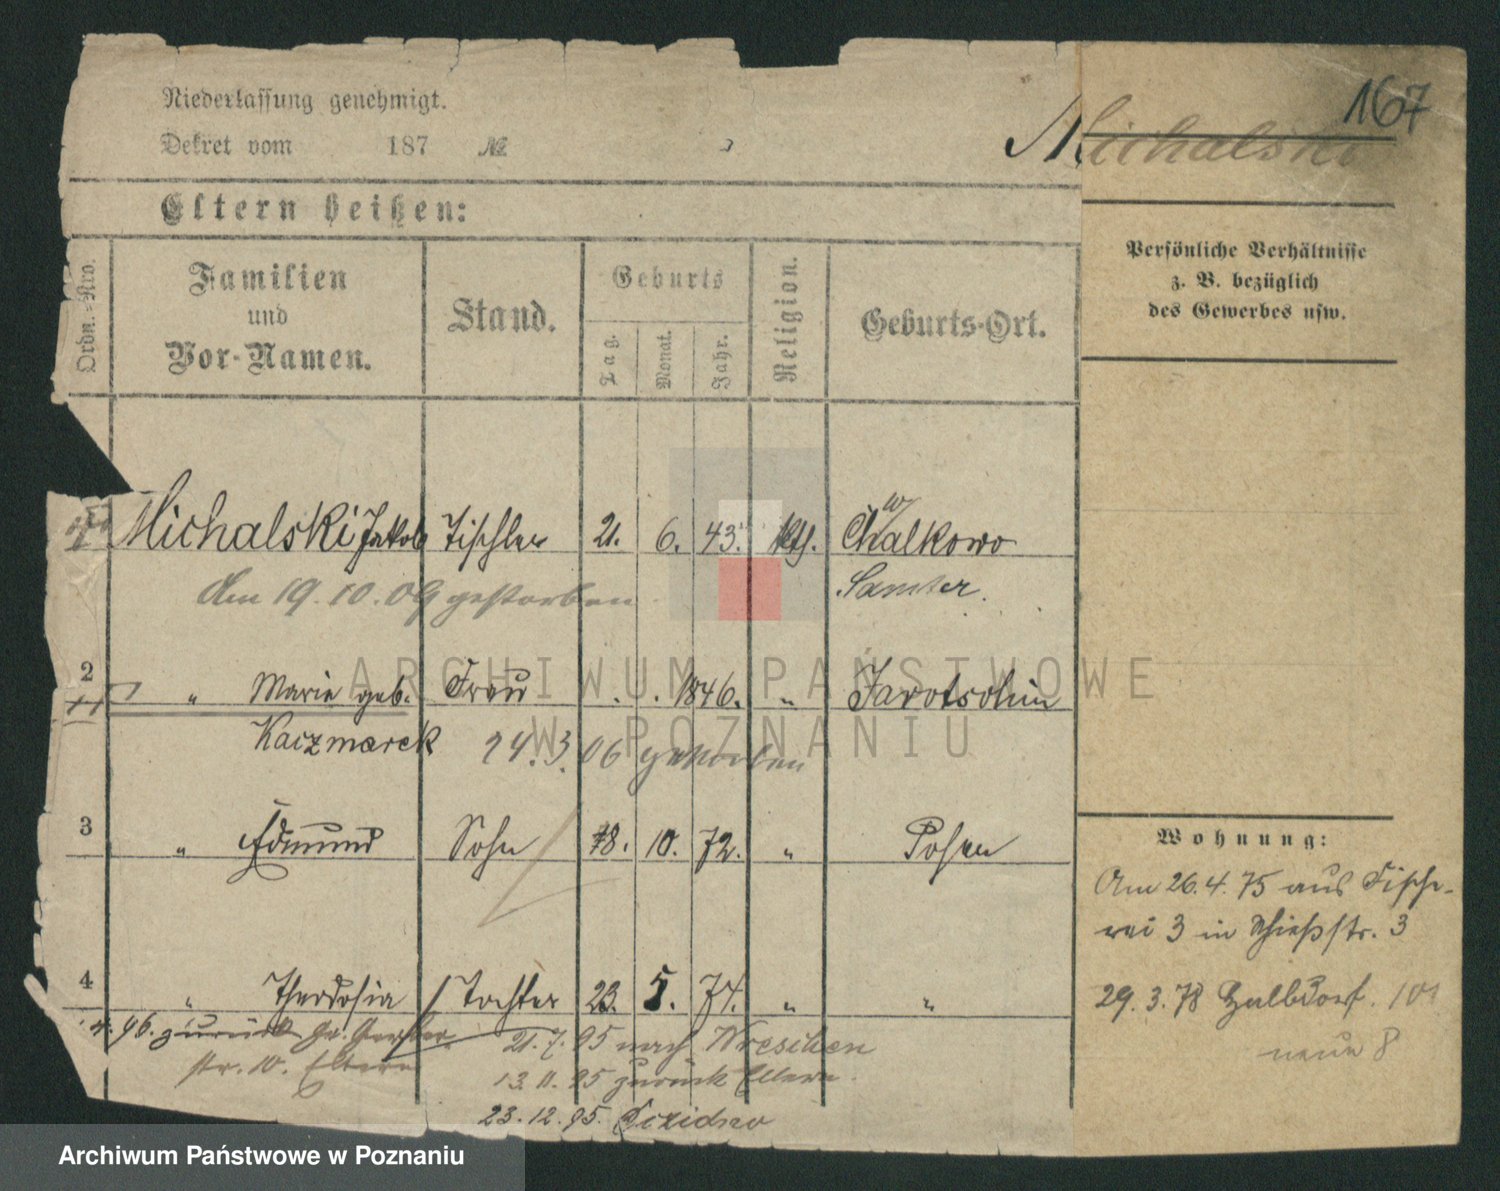 167
Michalski
Niederlassung genehmigt.
Dekret vom 187 №
Eltern heißen:
Ordn.-Nro.
Familien
und
Vor-Namen.
Stand.
Geburts
Tag.
Monat.
Jahr.
Religion.
Geburts-Ort.
Persönliche Verhältnisse
z. B. bezüglich
des Gewerbes usw.
1 Michalski Jakob Tischler 21. 6. 43. kth. Chalkowo
w
Am 19.10.09 gestorben
Samter.
2 " Marie geb. Frau . . 1846. " Jarotschin
Kaczmarek 24.3.06 gestorben
3 " Edmund Sohn 18. 10. 72. " Posen
4 " Theodosia Tochter 23. 5. 74. " "
4. 96. zurück Gr. Gerber
str. 10. Eltern
21.7.95 nach Wreschen
13.11.95 zurück Eltern.
23.12.95.
Wohnung:
Am 26.4.75 aus Fische-
rei 3 in Schießstr. 3
29.3.78 Halbdorf. 101
neue 8
ARCHIWUM PAŃSTWOWE
W POZNANIU
Archiwum Państwowe w Poznaniu